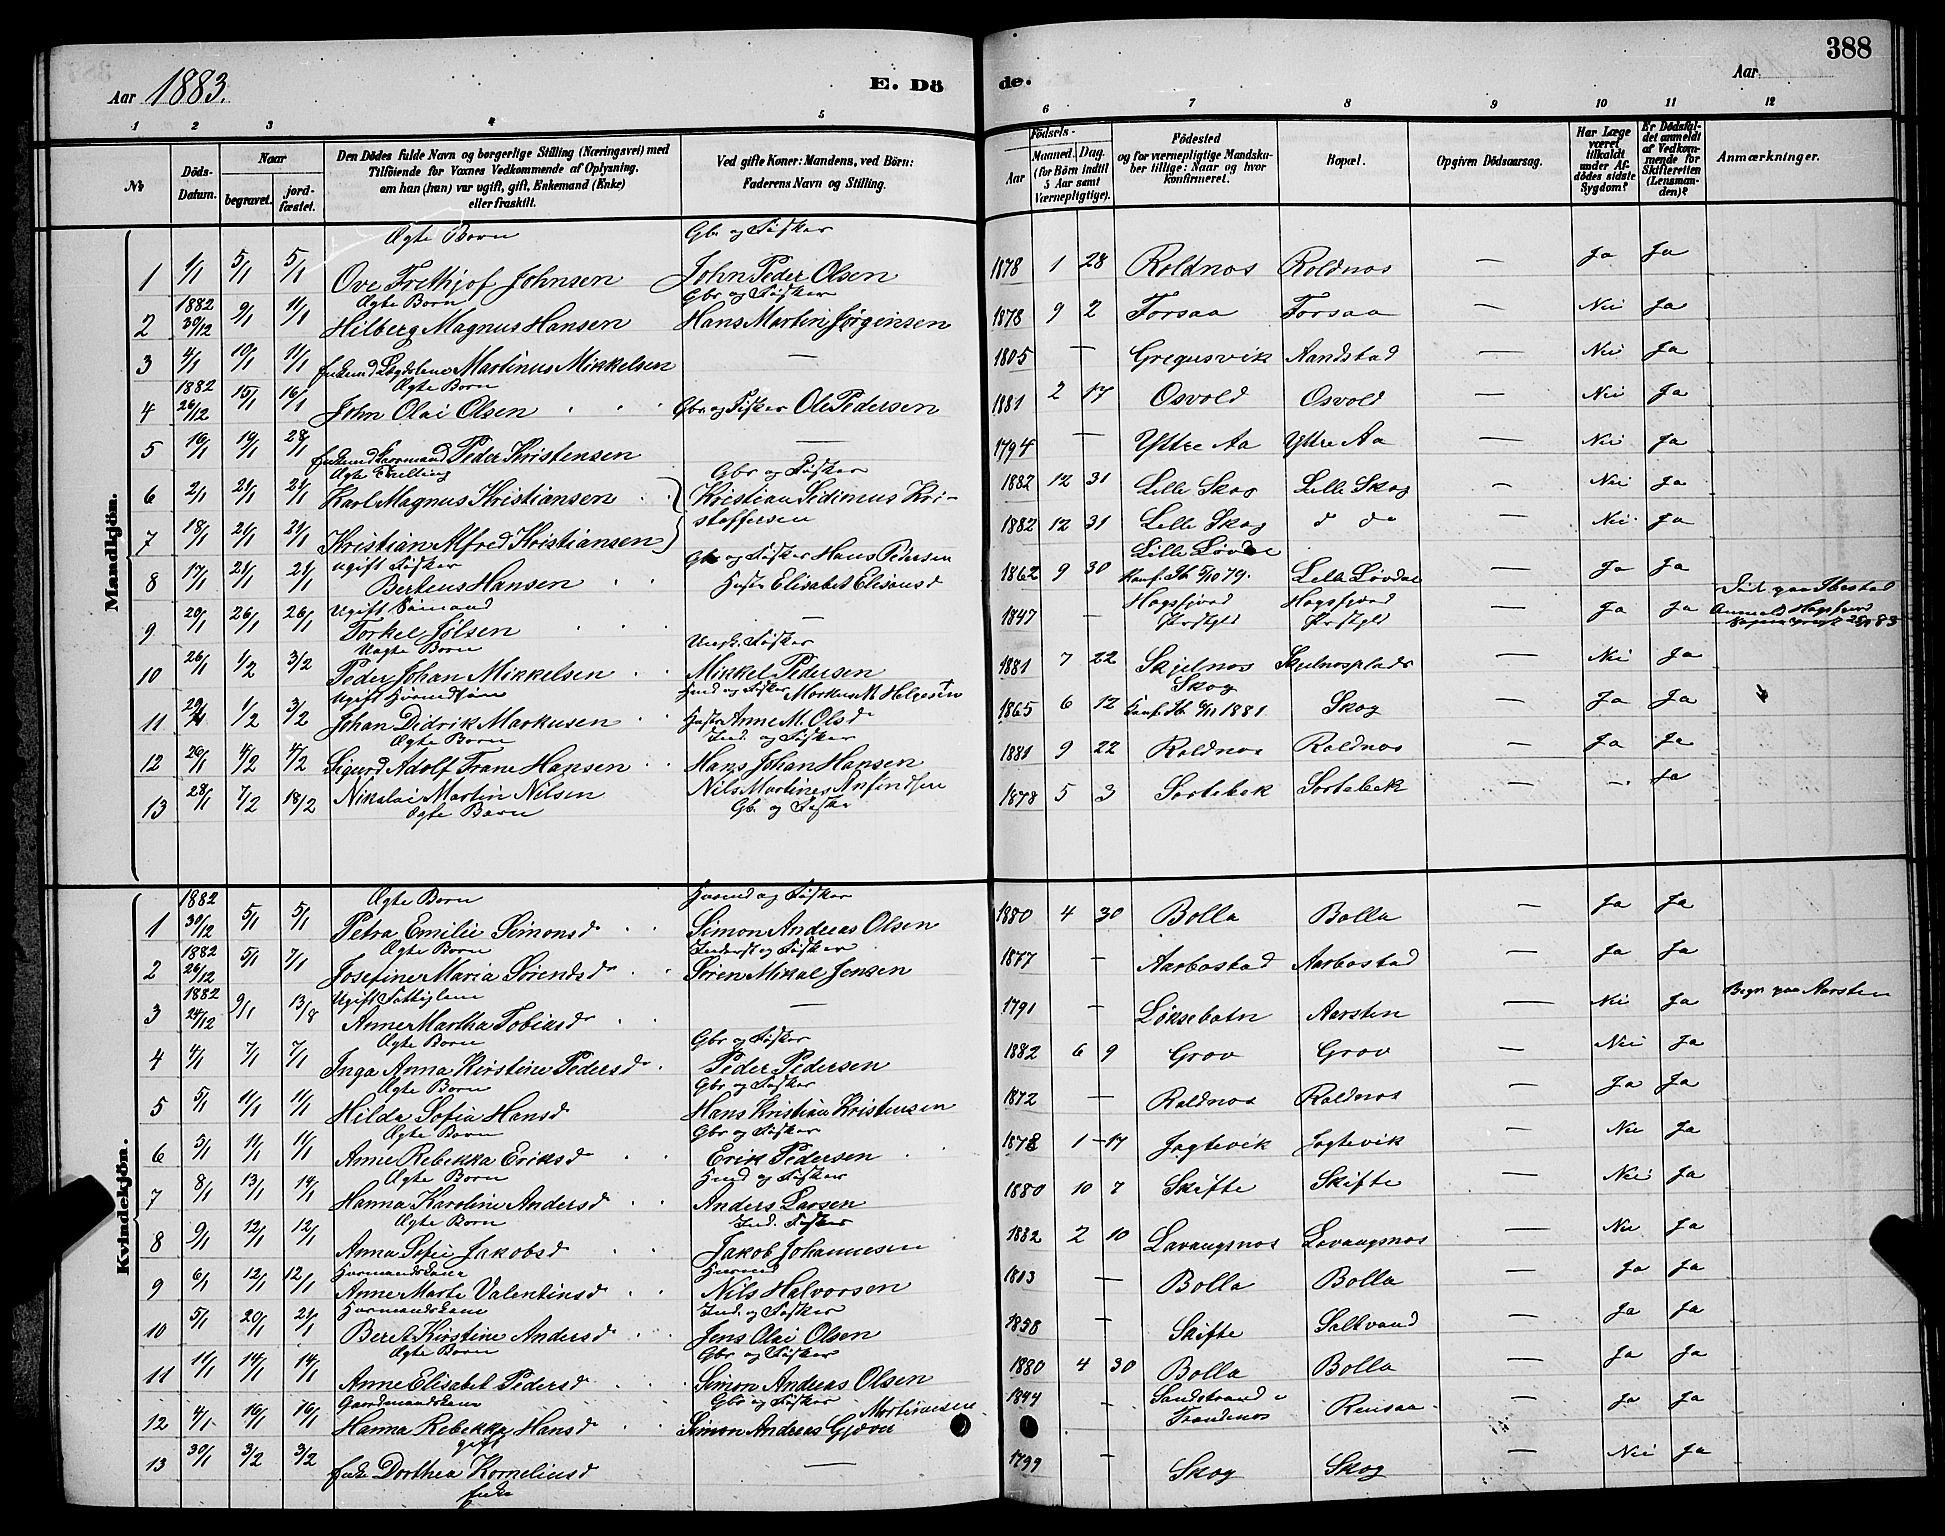 388
Aar 1883.
E. Dö
de.
Aar
1 2 3 4 5 6 7 8 9 10 11 12
No
Döds-Datum.
Naar
begravet.
jord-fæstet.
Den Dödes fulde Navn og borgerlige Stilling (Næringsvei) med
Tilföiende for Voxnes Vedkommende af Oplysning,
om han (hun) var ugift, gift, Enkemand (Enke)
eller fraskilt.
Ved gifte Koner: Mandens, ved Börn:
Faderens Navn og Stilling.
Födsels-
Aar
Maaned. Dag.
(for Börn indtil
5 Aar samt
Værnepligtige).
Födested
og for værnepligtige Mandska-
ber tillige: Naar og hvor
konfirmeret.
Bopæl.
Opgiven Dödsaarsag.
Har Læge
været
tilkaldt
under Af-
dødes sidste
Sygdom?
Er Dödsfal-
det anmeldt
af Vedkom-
mende for
Skifteretten
(Lensman-
den)?
Anmærkninger.
Mandkjön.
Ægte Barn Gbr og Fisker
1 1/1 5/1 5/1 Ove Frethjof Johnsen John Peder Olsen 1878 1 28 Roldnos Roldnos — Ja Ja
1882 Ægte Barn Gbr og Fisker
2 30/12 9/1 11/1 Hilberg Magnus Hansen Hans Martin Jørgensen 1878 9 2 Forsaa Forsaa — Nei Ja
3 4/1 10/1 11/1 Martinus Mikkelsen — 1805 — Gregusvik Aandstad — Nei Ja
1882 Ægte Barn
4 26/12 15/1 16/1 John Olai Olsen Gbr og Fisker Ole Pedersen 1881 2 17 Osvold Osvold — Nei Ja
5 10/1 19/1 28/1 Peder Kristensen — 1794 — Yttre Aa Yttre Aa — Nei Ja
Ægte Tvilling Gbr og Fisker
6 2/1 21/1 21/1 Karl Magnus Kristiansen Kristian Sedinius Kri- 1882 12 31 Lille Skog Lille Skog — Nei Ja
stoffersen
7 18/1 21/1 21/1 Kristian Alfred Kristiansen 1882 12 31 Lille Skog d do Nei Ja
Ugift Fisker Gbr og Fisker Hans Pedersen Lille Løvdal
8 17/1 21/1 21/1 Berteus Hansen Hustr Elisabet Elisausd 1862 9 30 Konf. Ib 5/10 79. Lille Løvdal — Ja Ja
Ugift Sømand Død paa Ibestad
9 20/1 26/1 26/1 Torkel Jølsen — 1847 — Høgsfjord Høgsfjord — Ja Ja
Uægte Barn Ungk. Fisker
10 26/1 1/2 3/2 Peder Johan Mikkelsen Mikkel Pedersen 1881 7 22 Skjelnos Skjelnosplads — Nei Ja
Skog
11 1/2 3/2 Johan Didrik Markusen Hustr Anne M. Olsd 1865 6 12 Konf. Ib 1881. Skog — Ja Ja
Ægte Barn Ind. og Fisker
12 26/1 4/2 4/2 Sigurd Adolf Frane Hansen Hans Johan Hansen 1881 9 22 Roldnos Roldnos — Ja Ja
13 28/1 7/2 18/2 Nikolai Martin Nilsen Nils Martines Anfindsen 1878 5 3 Sortebek Sortebek — — Ja
Ægte Barn Gb. og Fisker
Kvindekjön.
1882 Ægte Barn Husmd og Fisker
1 30/12 5/1 5/1 Petra Emilie Simonsd Simon Andreas Olsen 1880 4 30 Bolla Bolla — Ja Ja
1882 Ægte Barn Inderst og Fisker
2 26/12 5/1 7/1 Josefine Maria Sørensd Søren Mikal Jensen 1877 — Aarbostad Aarbostad — Ja Ja
1882 Ugift Fattiglem
3 24/12 9/1 13/8 Anne Martha Tobiasd — 1791 — Løksebotn Aarsten — Nei Ja Begr paa Aarsten
Ægte Barn Gbr og Fisker
4 4/1 7/1 7/1 Inga Anna Kirstine Pedersd Peder Pedersen 1882 6 9 Grov Grov — Nei Ja
Ægte Barn Gbr og Fisker
5 5/1 11/1 11/1 Hilda Sofia Hansd Hans Kristian Kristensen 1872 — Roldnos Roldnos — Ja Ja
Ægte Barn Gbr og Fisker
6 3/1 11/1 11/1 Anne Rebekka Eriksd Erik Pedersen 1878 1 17 Jagtevik Jagtevik — Nei Ja
Ægte Barn Husmd og Fisker
7 8/1 13/1 14/1 Hanna Karoline Andersd Anders Larsen 1880 10 7 Skifte Skifte — Nei Ja
Ægte Barn Ind. Fisker
8 9/1 12/1 12/1 Anna Sofie Jakobsd Jakob Johannesen 1882 2 10 Lavangsnos Lavangsnos — Nei Ja
Husmandskone Husmd
9 6/1 12/1 12/1 Anne Marte Valentinsd Nils Halvorsen 1813 — Bolla Bolla — Ja Ja
Husmandskone Ind. og Fisker
10 5/1 20/1 21/1 Beret Kirstine Andersd Jens Olai Olsen 1858 — Skifte Saltvand — Ja Ja
Ægte Barn Gbr og Fisker
11 11/1 14/1 14/1 Anne Elisabet Pedersd Simon Andreas Olsen 1880 4 30 Bolla Bolla — Ja Ja
Gaardmandskone Gbr og Fisker
12 4/1 16/1 16/1 Hanna Rebekka Hansd Simon Andreas Gjøver Martinusen 1844 — Sandstrand i Trondenos Rensaa — Ja Ja
gift
13 30/1 3/2 3/2 Enke Dorthea Kornelinsd — 1799 — Skog Skog — Nei Ja
Enke